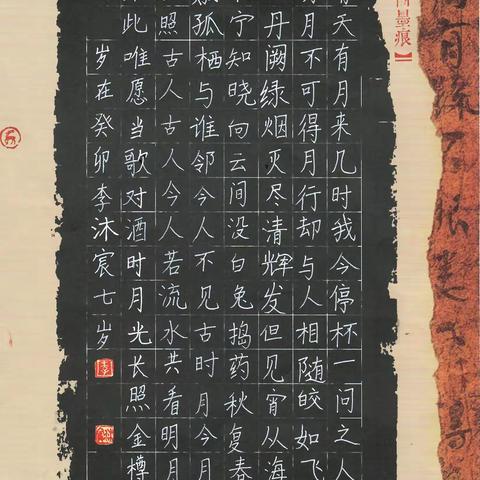 墨痕】
天有月来几时我今停杯一问之人
月不可得月行却与人相随皎如飞
丹阙绿烟灭尽清辉发但见宵从海
宁知晓向云间没白兔捣药秋复春
孤栖与谁邻今人不见古时月今月
照古人古人今人若流水共看明月
此唯愿当歌对酒时月光长照金樽
岁在癸卯李沐宸七岁